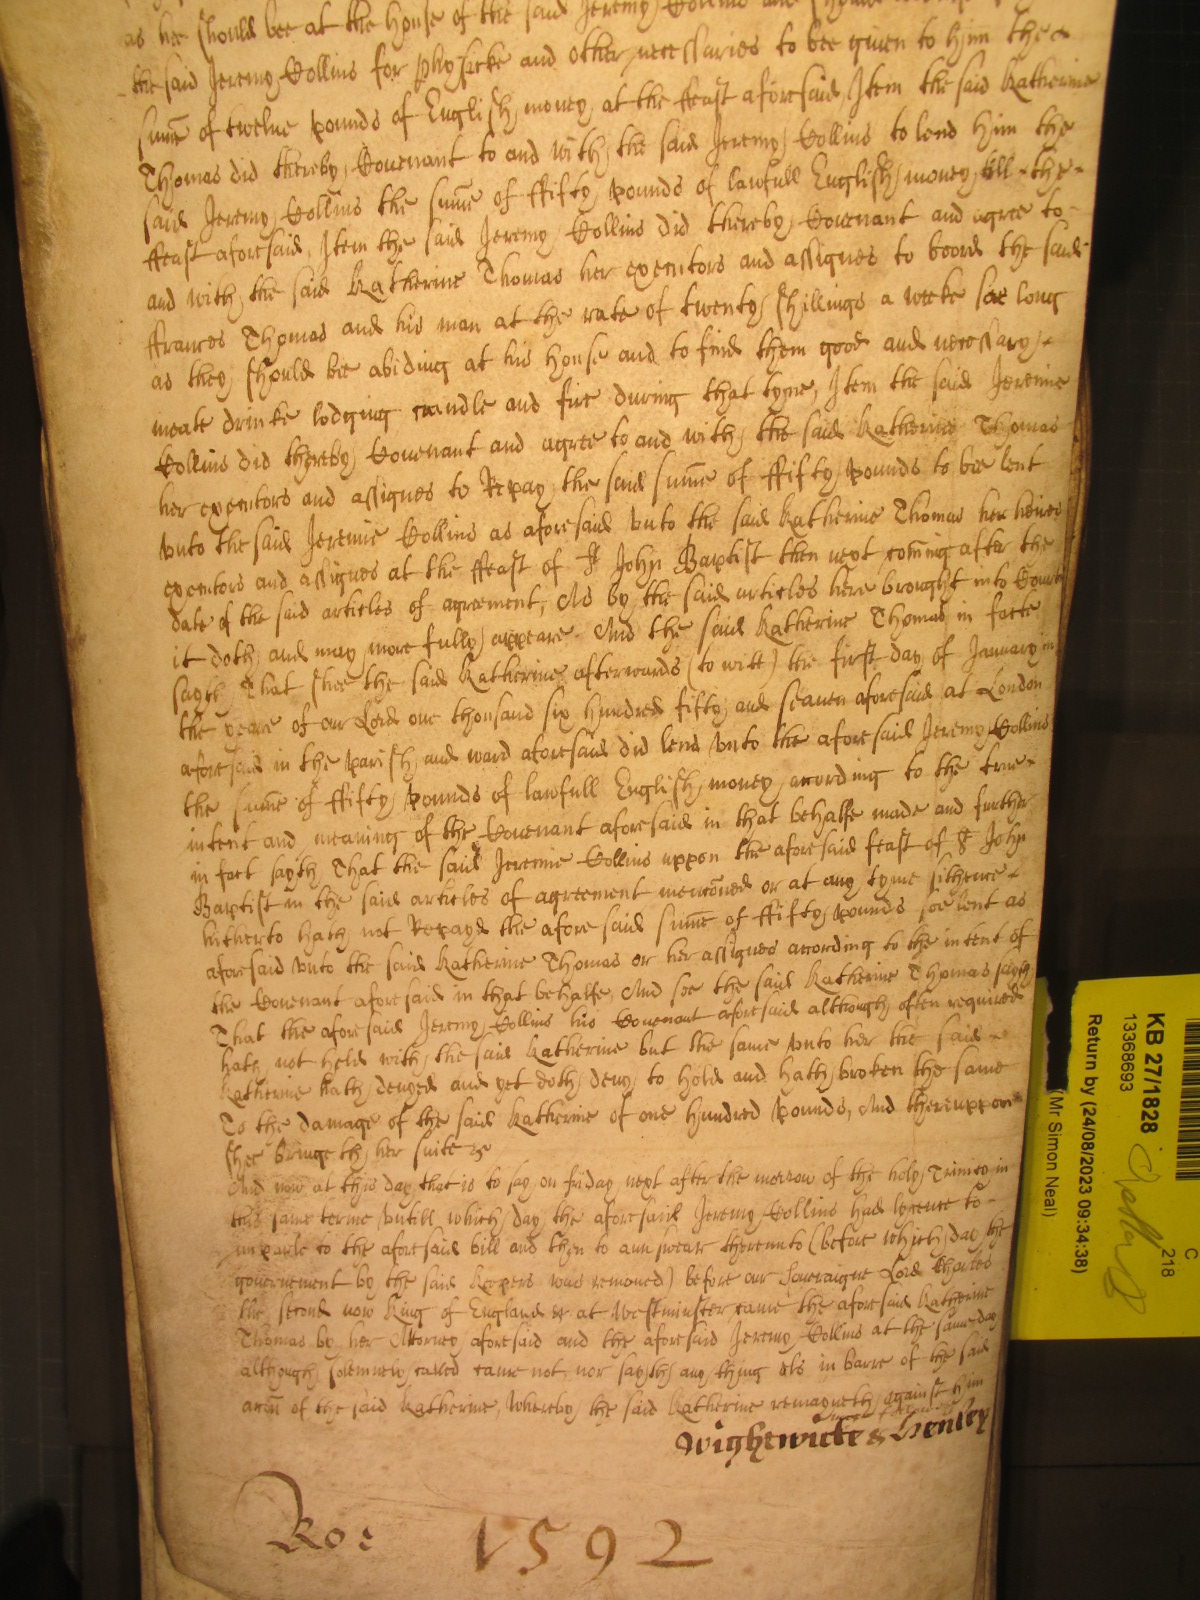 as hee should bee at the house of the said Jeremy Collins and
the said Jeremy Collins for physicke and other necessaries to bee given to him the
sume of twelve pounds of English money at the ffeast aforesaid, Item the said Katherine
Thomas did thereby Covenant to and with the said Jeremy Collins to lend him the
said Jeremy Collins the sume of ffifty pounds of lawfull English money till the
ffeast aforesaid, Item the said Jeremy Collins did thereby Covenant and agree to
and with the said Katherine Thomas her executors and assignes to boord the said
ffrances Thomas and his man at the rate of twenty shillings a weeke soe long
as they should bee abiding at his house and to find them good and necessary
meate drinke lodging candle and fire during that tyme, Item the said Jeremie
Collins did thereby Covenant and agree to and with the said Katherine Thomas
her executors and assignes to Repay the said sume of ffifty pounds to bee lent
vnto the said Jeremie Collins as aforesaid vnto the said Katherine Thomas her heires
executors and assignes at the ffeast of St John Baptist then next coming after the
date of the said articles of agreement, As by the said articles here brought into Court
it doth and may more fully appeare. And the said Katherine Thomas in facte
sayth That shee the said Katherine afterwards (to witt) the first day of January in
the yeare of our Lord one thousand six hundred fifty and seaven aforesaid at London
aforesaid in the parish and ward aforesaid did lend vnto the aforesaid Jeremy Collins
the sume of ffifty pounds of lawfull English money according to the true
intent and meaning of the Covenant aforesaid in that behalfe made and further
in fact sayth That the said Jeremie Collins uppon the aforesaid feast of St John
Baptist in the said articles of agreement menconed or at any tyme sithence
hitherto hath not Repayd the afore said sume of ffifty pounds soe lent as
aforesaid vnto the said Katherine Thomas or her assignes according to the intent of
the Covenant aforesaid in that behalfe, And soe the said Katherine Thomas sayth
That the aforesaid Jeremy Collins his Covenant aforesaid although often required
hath not held with the said Katherine but the same vnto her the said
Katherine hath denyed and yet doth deny to hold and hath broken the same
To the damage of the said Katherine of one hundred pounds, And thereuppon
shee bringeth her suite &c
And now at this day that is to say on friday next after the morrow of the holy Trinity in
this same terme vntill which day the aforesaid Jeremy Collins had licence to
imparle to the aforesaid bill and then to aunswear thereunto (before which day the
governement by the said Keepers was removed) before our Soveraigne Lord Charles
the second now King of England &c at Westminster came the aforesaid Katherine
Thomas by her Attorney aforesaid and the aforesaid Jeremy Collins at the same day
although solemnely called came not, nor sayth any thing els in barre of the said
accon of the said Katherine, Whereby the said Katherine remayneth against him
Wightwicke & Henley
Ro:
1592
KB 27/1828
13368693
Return by (24/08/2023 09:34:38)
(Mr Simon Neal)
C
218